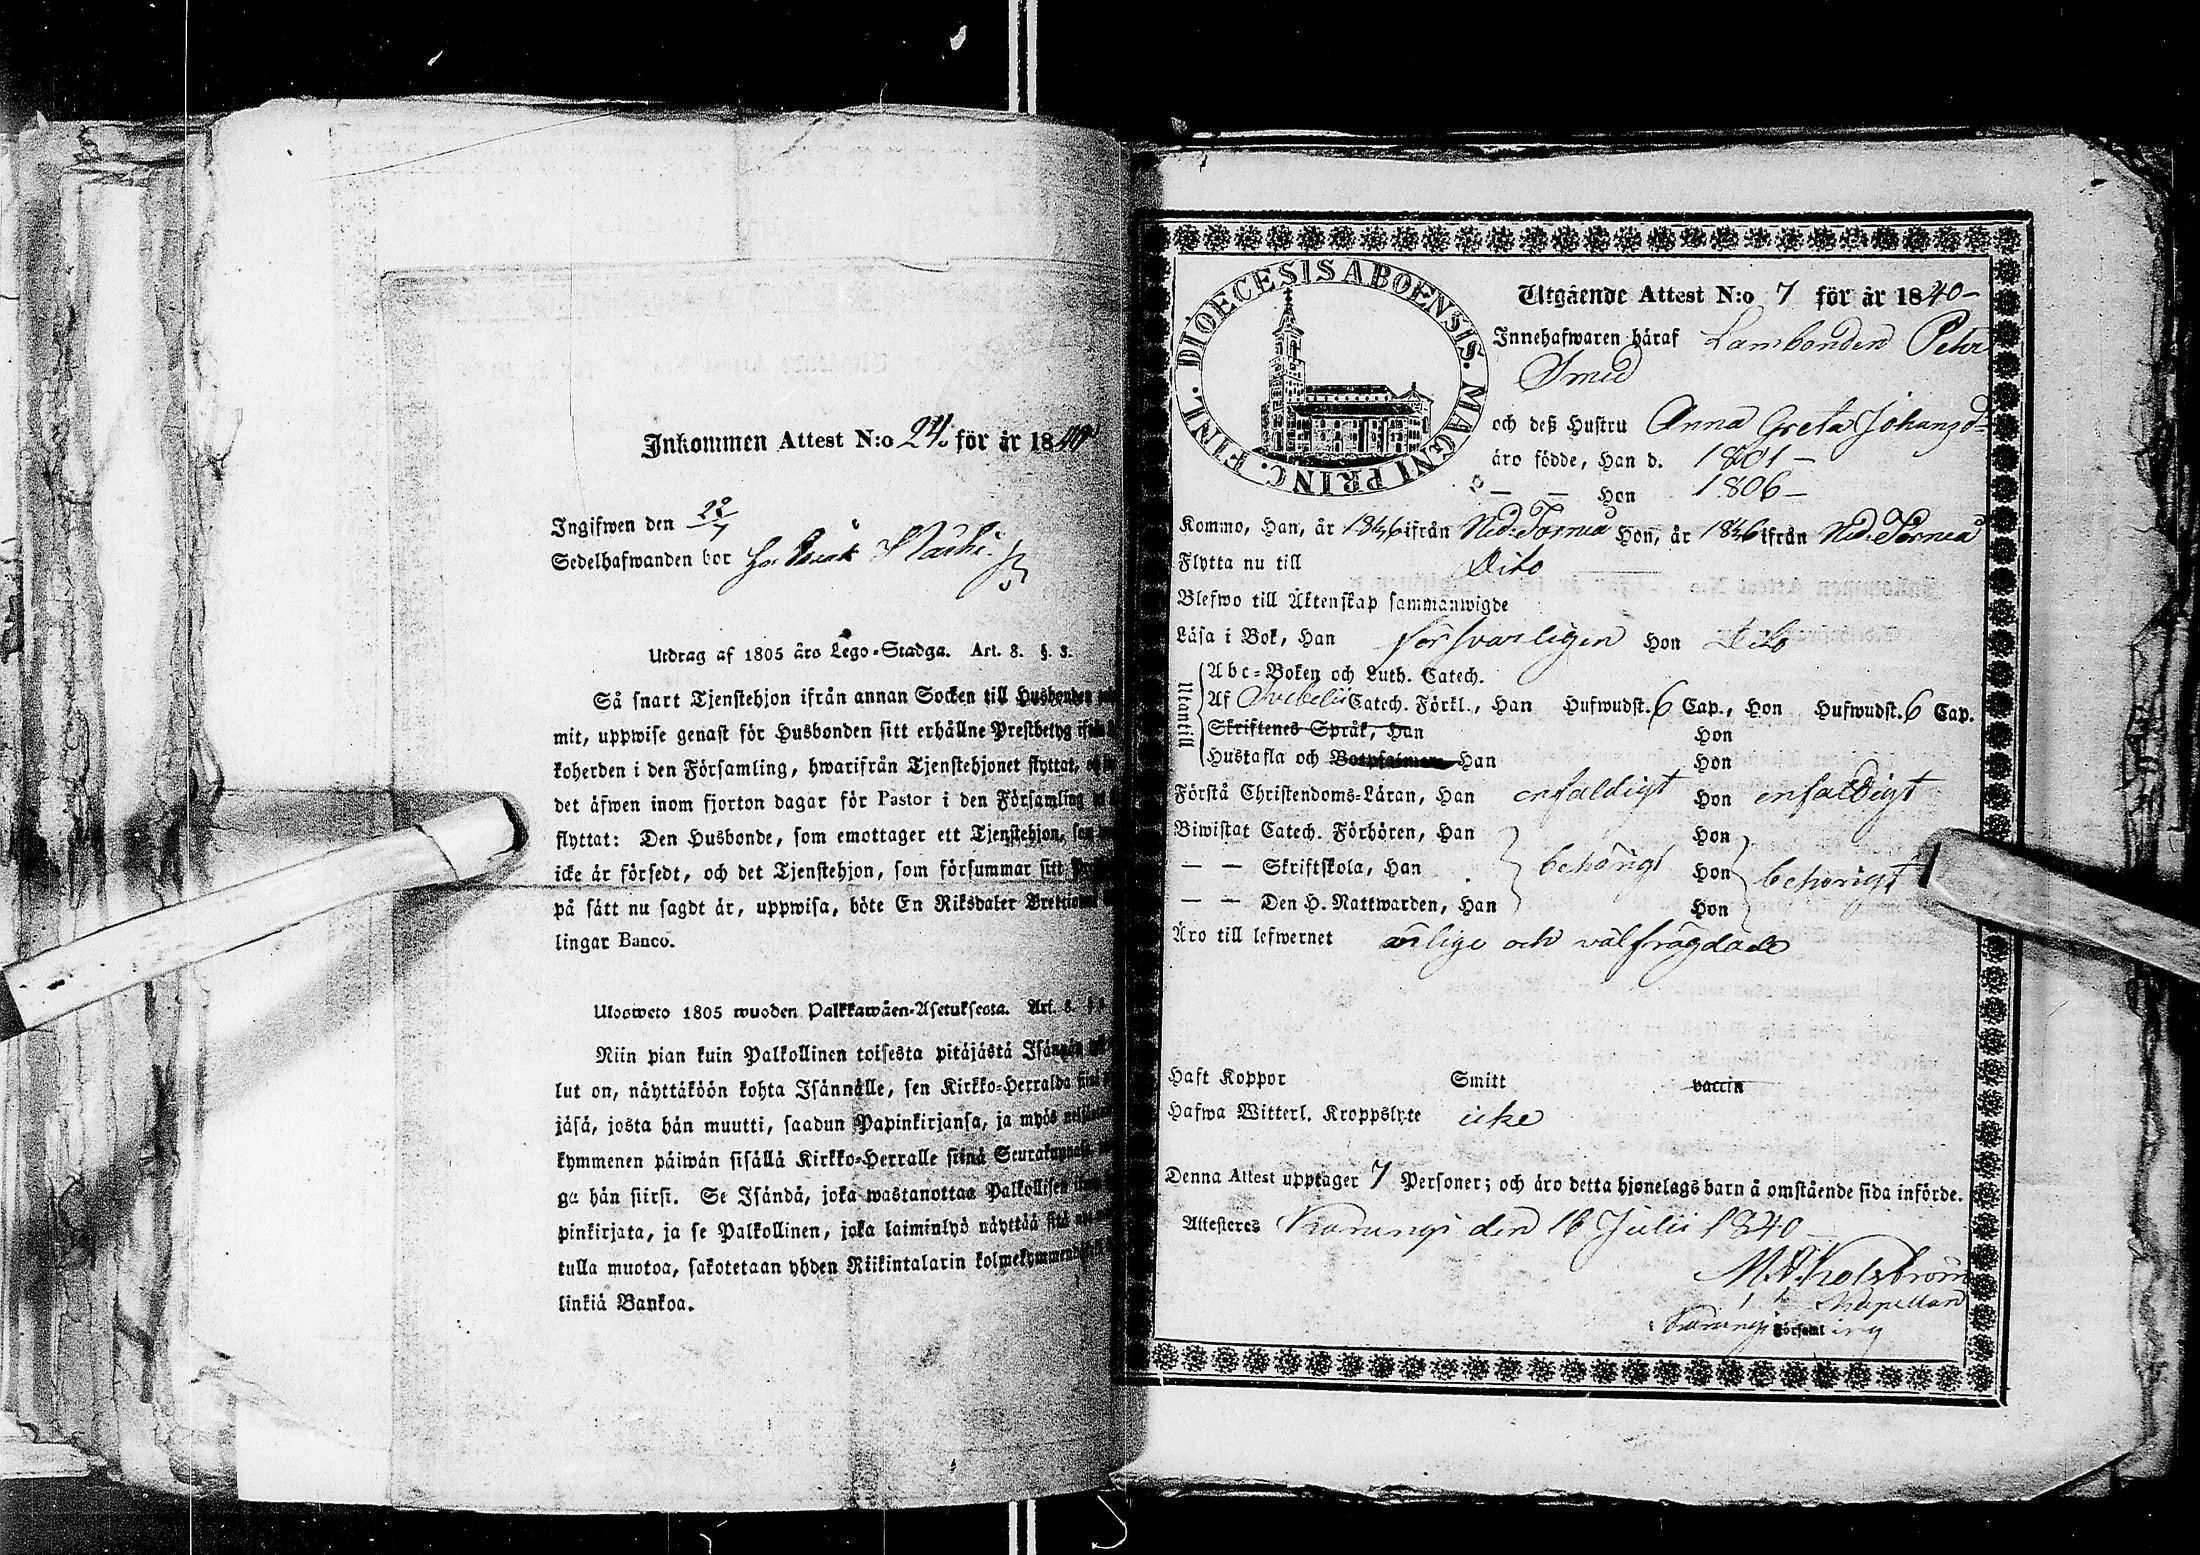 Inkommen Attest N:o 24. för år 1840
Ingifwen den 22/7
Sedelhafwanden bor hos
Utdrag af 1805 års Lego-Stadga. Art. 8. §. 8.
Så snart Tjenstehjon ifrån annan Socken till Husbonden
mit, uppwise genast för Husbonden sitt erhållne Prestbetyg ifrån
koherden i den Församling, hwarifrån Tjenstehjonet flyttat,
det äfwen inom fjorton dagar för Pastor i den Församling
flyttat: Den Husbonde, som emottager ett Tjenstehjon,
icke är försedt, och det Tjenstehjon, som försummar sitt
på sätt nu sagdt är, uppwisa, böte En Riksdaler
lingar Banco.
Ulosweto 1805 wuoden Palkkawäen-Asetuksesta. Art. 8. §
Niin pian kuin Palkollinen toisesta pitäjästä Isännän
lut on, näyttäköön kohta Isännälle, sen Kirkko-Herralda
jäsä, josta hän muutti, saadun Papinkirjansa, ja myös
kymmenen päiwän sisällä Kirkko-Herralle siinä
ga hän siirsi. Se Isändä, joka wastanottaa Palkollisen
pinkirjata, ja se Palkollinen, joka laiminlyö näyttää sitä
tulla muotoa, sakotetaan yhden Riikintalarin
linkiä Bankoa.
DIOECESIS ABOENSIS. MAGNI PRINC. FINL.
Utgående Attest N:o 7 för år 1840-
Innehafwaren häraf Lambonden Pehr
Smed
och deß Hustru Anna Greta Johansd:
äro födde, Han d. 1801-
— — Hon 1806-
Kommo, Han, år 1836 ifrån Ned: Torneå Hon, år 1836 ifrån Ned: Torneå
Flytta nu till Dito
Blefwo till Äktenskap sammanwigde
Läsa i Bok, Han försvarligen Hon Dito
Utantill
Abc-Boken och Luth. Catech.
Af Svebelii Catech. Förkl., Han Hufwudst. 6 Cap., Hon Hufwudst. 6 Cap.
Skriftenes Språk, Han Hon
Hustafla och Botpsalmen Han Hon
Förstå Christendoms-Läran, Han enfaldigt Hon enfaldigt
Biwistat Catech. Förhören, Han Hon
— — Skriftskola, Han behörigt Hon behörigt
— — Den H. Nattwarden, Han Hon
Äro till lefwernet ärlige och välfrägdade
Haft Koppor Smitt vaccin
Hafwa Witterl. Kroppslyte icke
Denna Attest upptager 7 Personer; och äro detta hjonelags barn å omstående sida införde.
Attesteres Karungi den 16 Julii 1840-
Kapellan
Karungi Församling